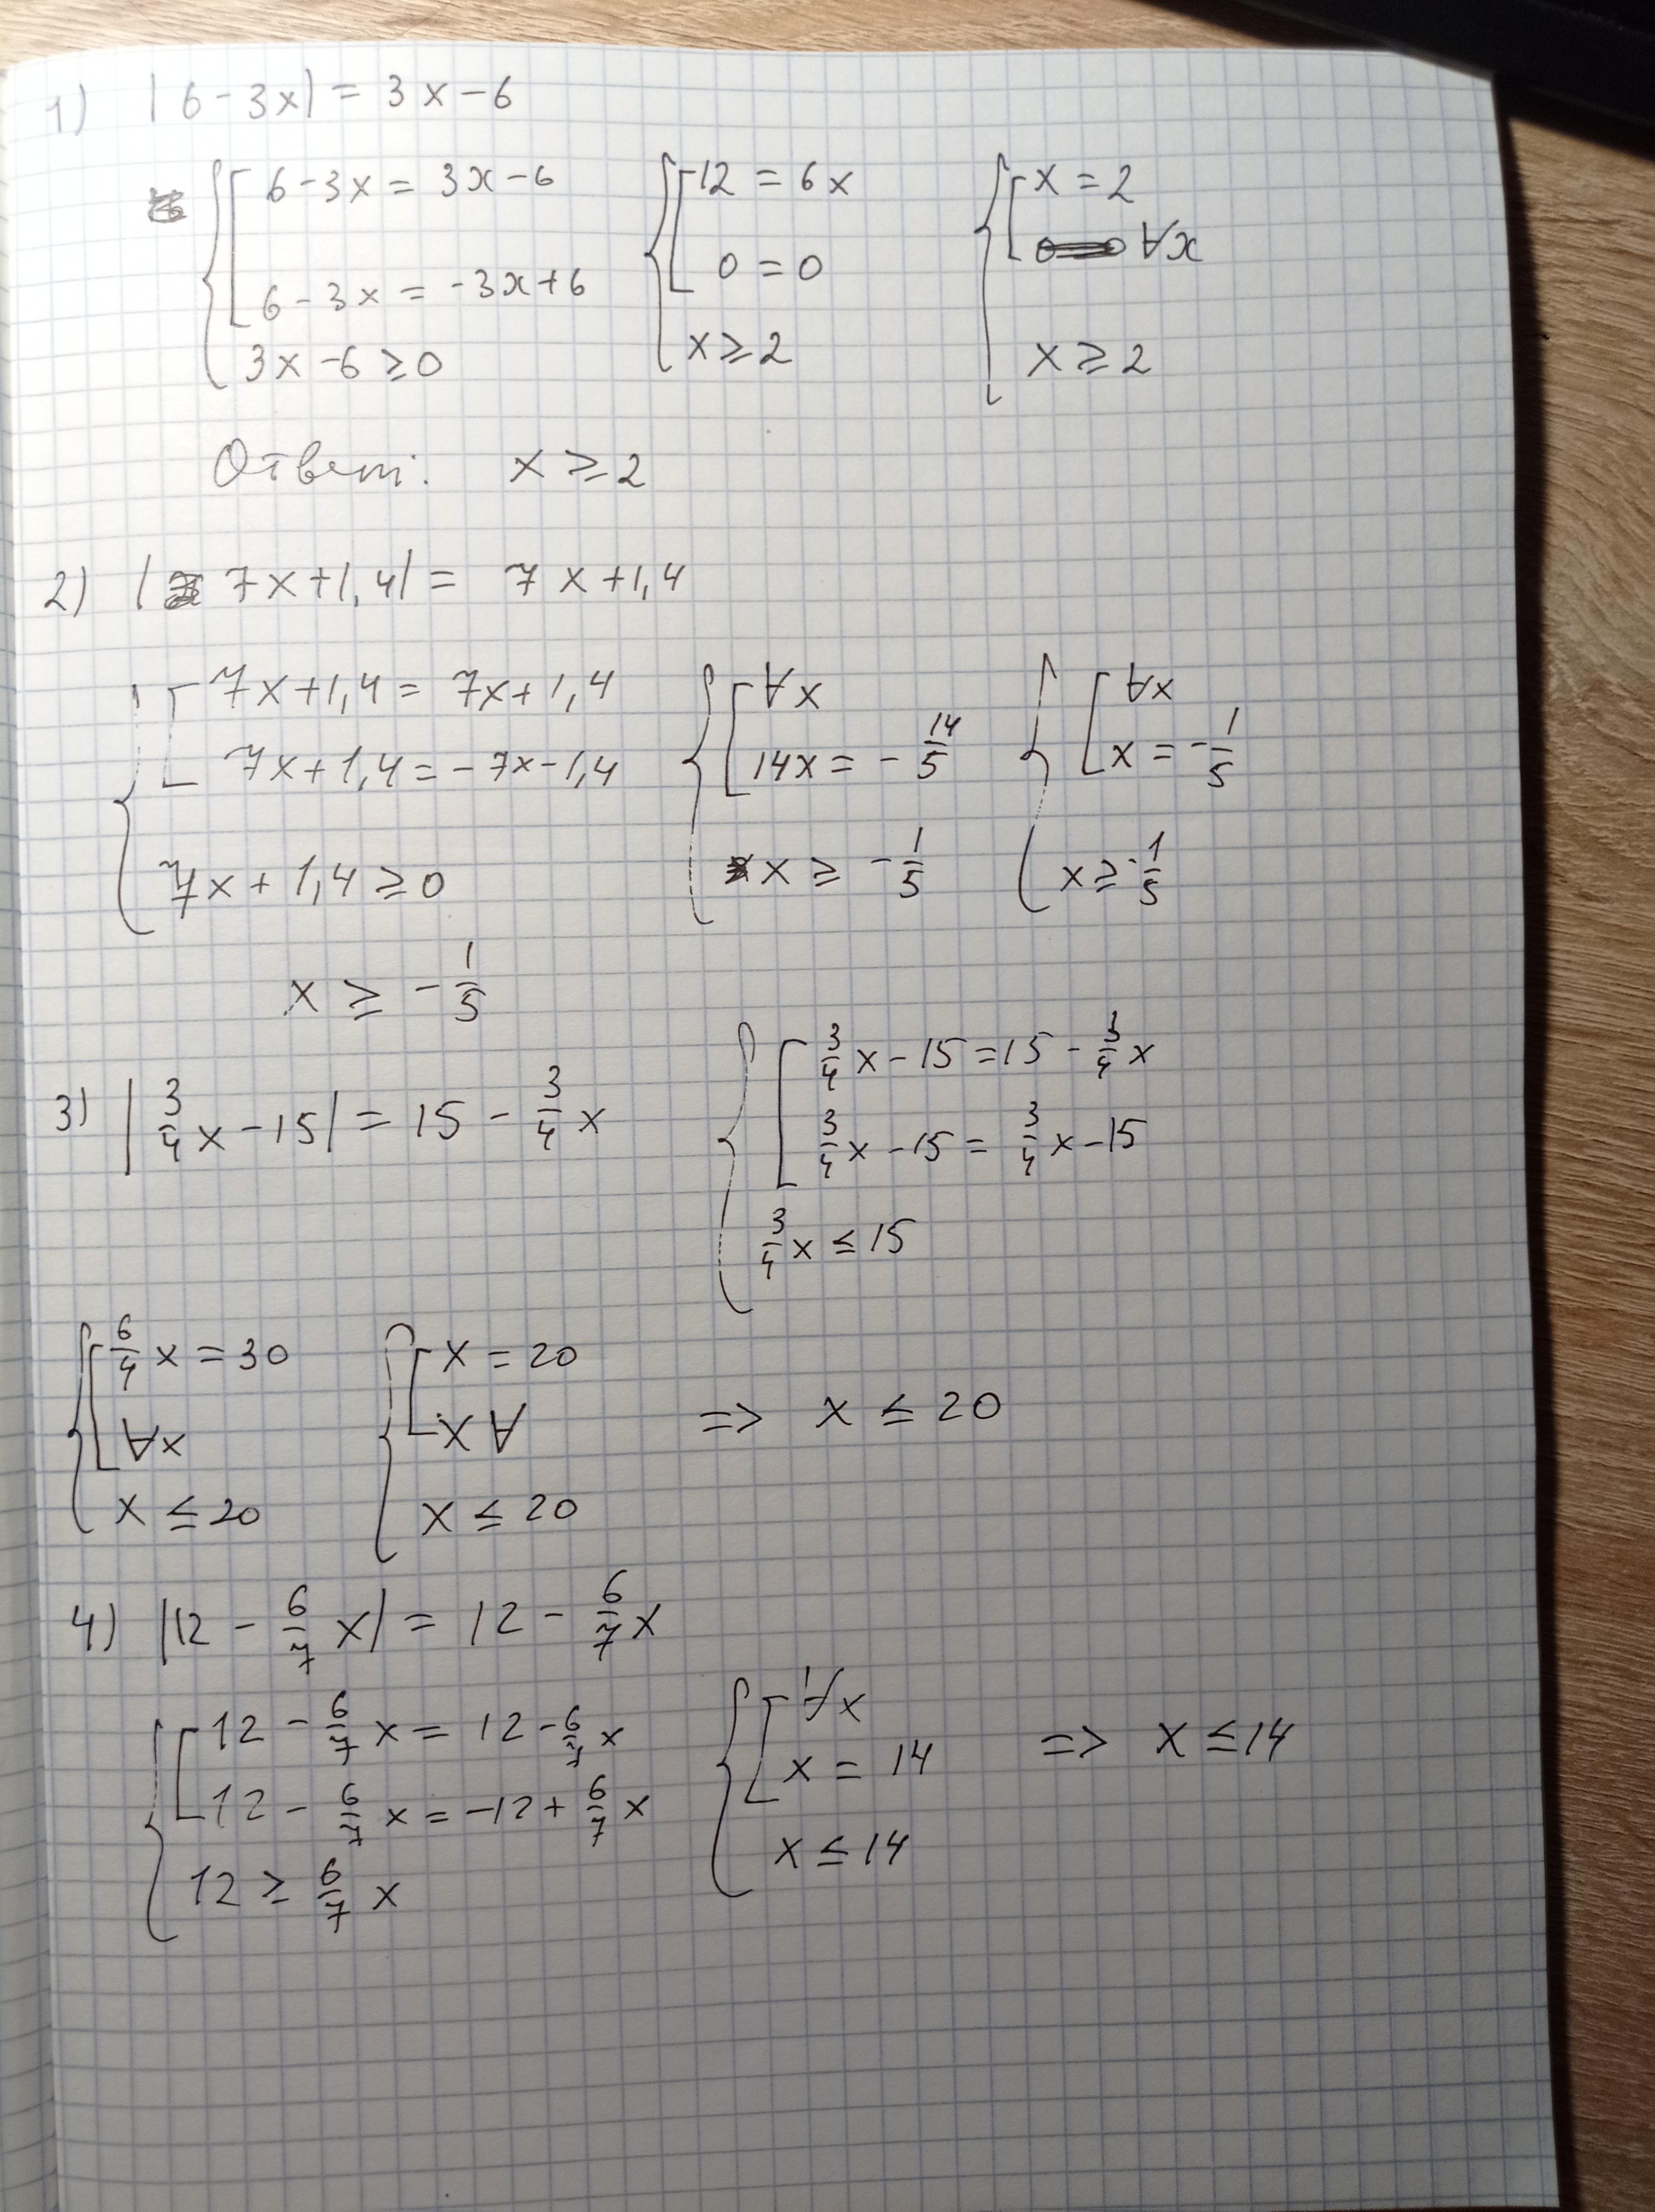 1) |6 - 3x| = 3x - 6
{ [ 6 - 3x = 3x - 6 { [ 12 = 6x { [ x = 2
6 - 3x = -3x + 6 0 = 0 ∀x
3x - 6 ≥ 0 x ≥ 2 x ≥ 2
Ответ: x ≥ 2
2) | 7x + 1,4| = 7x + 1,4
{ [ 7x + 1,4 = 7x + 1,4 { [ ∀x { [ ∀x
7x + 1,4 = -7x - 1,4 14x = -14/5 x = -1/5
7x + 1,4 ≥ 0 x ≥ -1/5 x ≥ -1/5
x ≥ -1/5
3) |3/4 x - 15| = 15 - 3/4 x
{ [ 3/4 x - 15 = 15 - 3/4 x
3/4 x - 15 = 3/4 x - 15
3/4 x ≤ 15
{ [ 6/4 x = 30 { [ x = 20
∀x x ∀ => x ≤ 20
x ≤ 20 x ≤ 20
4) |12 - 6/7 x| = 12 - 6/7 x
{ [ 12 - 6/7 x = 12 - 6/7 x { [ ∀x
12 - 6/7 x = -12 + 6/7 x x = 14 => x ≤ 14
12 ≥ 6/7 x x ≤ 14